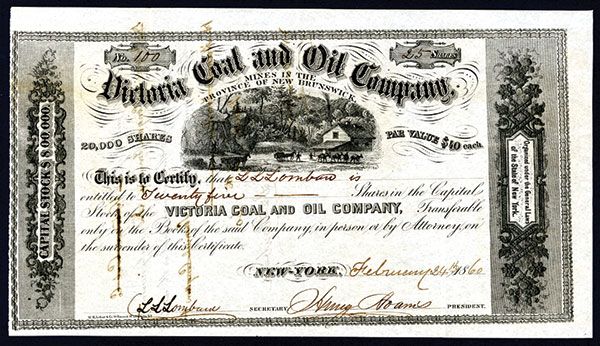 No. 100
25 Shares
Victoria Coal and Oil Company,
MINES IN THE
PROVINCE OF NEW BRUNSWICK.
20,000 SHARES
PAR VALUE $40 each.
CAPITAL STOCK $800,000.
Organised under the General Laws
of the State of New York.
This is to Certify, that L L Lombard is
entitled to Twenty five Shares in the Capital
Stock of the VICTORIA COAL AND OIL COMPANY, Transferable
only in the Books of the said Company, in person or by Attorney, on
the surrender of this Certificate.
NEW-YORK, February 24th 1860
L L Lombard SECRETARY. PRESIDENT.